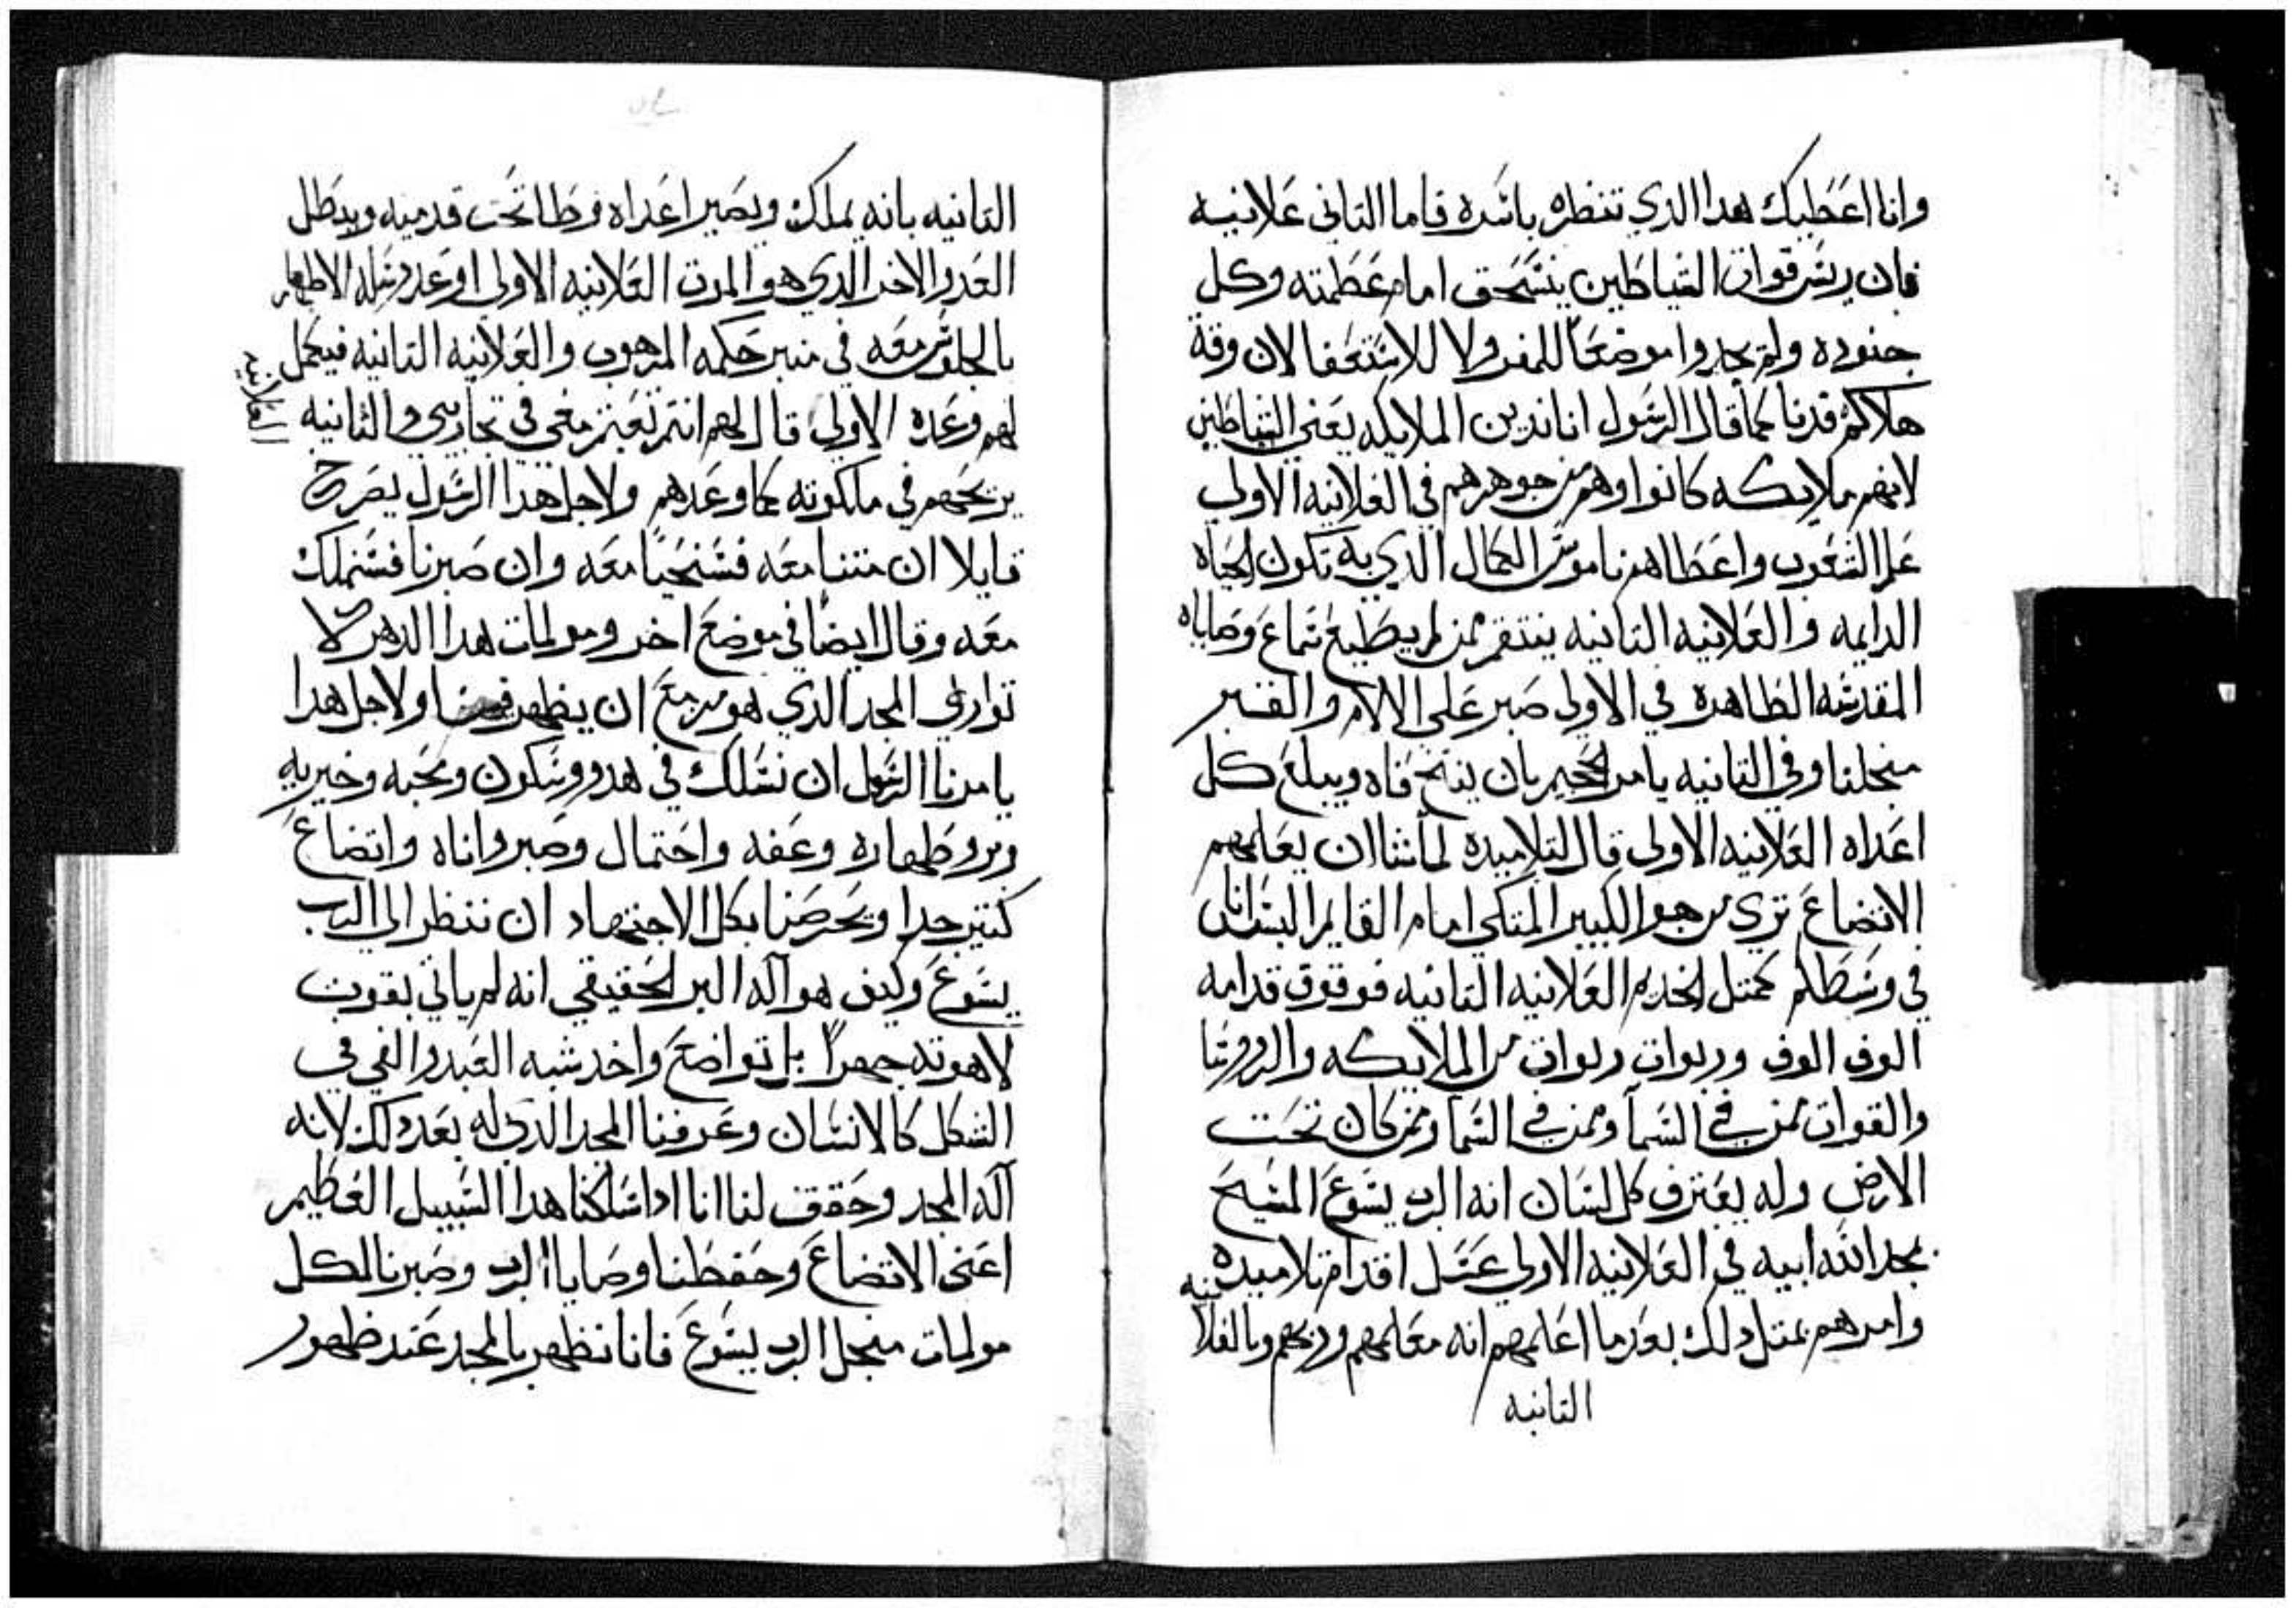 وانا اعطيك هدا الدي تنظره باسره فاما التاني علانيه
فان ريس قوات الشياطين ينسحق امام عظمته وكل
جنوده ولم يجدوا موضعا للمفر ولا للاستعفا لان وقة
هلاكهم قدنا كما قال الرسول اناندين الملايكه يعني الشياطين
لانهم ملايكه كانوا وهم من جوهرهم في العلانيه الاولي
علم الشعوب واعطاهم ناموس الكمال الدي به تكون الحياه
الدايمه والعلانيه التانيه ينتقم ممن لم يطيع سماع وصاياه
المقدسه الطاهره في الاولي صبر علي الالام والقبر
منجلنا وفي التانيه يامر الجحيم بان يفتح فاه ويبلع كل
اعداه العلانيه الاولي قال لتلاميده لما شا ان يعلمهم
الاتضاع تري من هو الكبير المتكي امام القايم البس انا
في وسطكم كمتل الخديم العلانيه التانيه فوقوف قدامه
الوف الوف وربوات ربوات من الملايكه والروسا
والقوات ممن في السمآ وممن في السما وممن كان تحت
الارض وله يعترف كل لسان انه الرب يسوع المسيح
بمجد الله ابيه في العلانيه الاولي غسل اقدام تلاميده
وامرهم بمتل دلك بعد ما اعلمهم انه معلمهم وربهم وبالعلا
نيه
التانيه
التانيه بانه يملك ويصير اعداه وطا تحت قدميه ويبطل
العدو الاخر الدي هو الموت العلانيه الاولي اوعد رسله الاطهار
بالجلوس معه في منبر حكمه المرهوب والعلانيه التانيه فيكمل
لهم وعده الاولي قال لهم انتم تعبتم معي في تجاربي والثانيه
العلانيه
يريحهم في ملكوته كما وعدهم ولاجل هدا الرسول يصرح
قايلا ان متنا معه فسنحيا معه وان صبرنا فسنملك
معه وقال ايضا في موضع اخر ومولمات هدا الدهر لا
توازي المجد الدي هو مزمع ان يظهر فينا ولاجل هدا
يامرنا الرسول ان نسلك في هدو وسكون ومحبه وخيريه
وبر وطهاره وعفه واحتمال وصبر واناه واتضاع
كتير جدا ويحرصنا بكل الاجتهاد ان ننظر الي الرب
يسوع وكيف هو اله البر الحقيقي انه لم ياتي بقوت
لاهوته جهرا بل تواضع واخد شبه العبد والفي في
الشكل كالانسان وعرفنا المجد الدي له بعد دلك لانه
اله المجد وحقق لنا انا ادا سلكنا هدا السبيل العظيم
اعني الاتضاع وحفظنا وصايا الرب وصبرنا لكل
مولمات منجل الرب يسوع فانا نظهر بالمجد عند ظهور